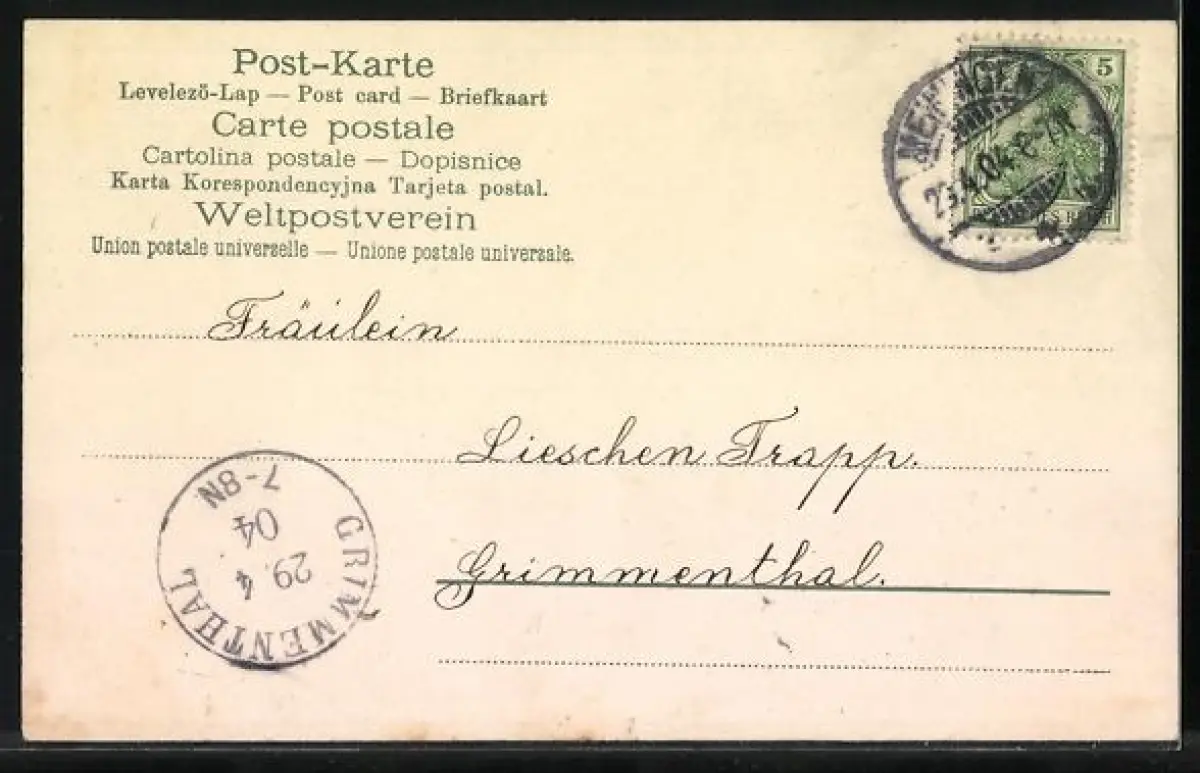 Post-Karte
Levelező-Lap — Post card — Briefkaart
Carte postale
Cartolina postale — Dopisnice
Karta Korespondencyjna Tarjeta postal.
Weltpostverein
Union postale universelle — Unione postale universale.
5
Fräulein
Lieschen Trapp.
Grimmenthal.
GRIMMENTHAL
29.4
04
7-8N